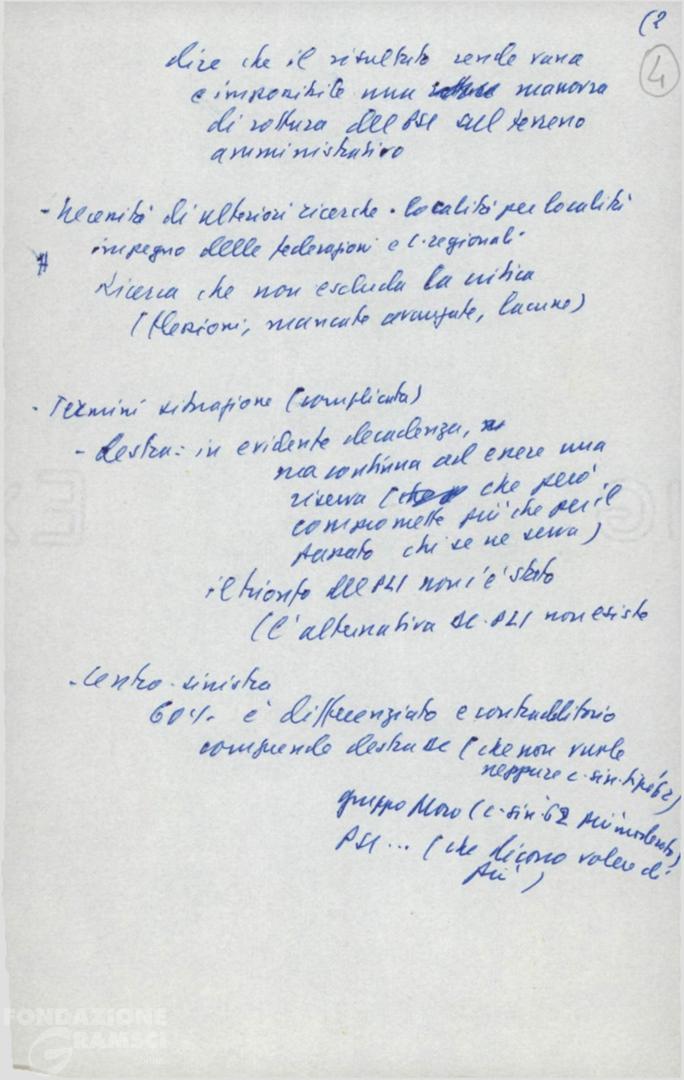 (2
4
dire che il risultato rende vana
e impossibile una manovra
di rottura del PSI sul terreno
amministrativo
- Necessità di ulteriori ricerche. località per località
impegno delle federazioni e C. regionali
Ricerca che non escluda la critica
(flessioni, mancate avanzate, lacune)
- Termini situazione (complicata)
- destra: in evidente decadenza,
ma continua ad essere una
riserva (che però
compromette più che per il
passato chi se ne serva)
il trionfo del PLI non c'è stato
(L'alternativa DC-PLI non esiste
- Centro-sinistra
60% è differenziato e contraddittorio
comprende destra DC (che non vuole
neppure c-sin. tipo '62)
gruppo Moro (c-sin '62 più moderato)
PSI... (che dicono volere di
più)
FONDAZIONE
GRAMSCI